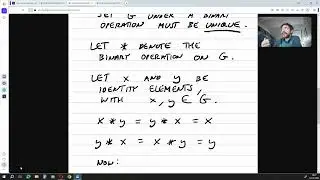 SET G UNDER A BINARY
OPERATION MUST BE UNIQUE.
LET * DENOTE THE
BINARY OPERATION ON G.
LET x AND y BE
IDENTITY ELEMENTS,
WITH x, y ∈ G.
x * y = y * x = x
y * x = x * y = y
NOW: